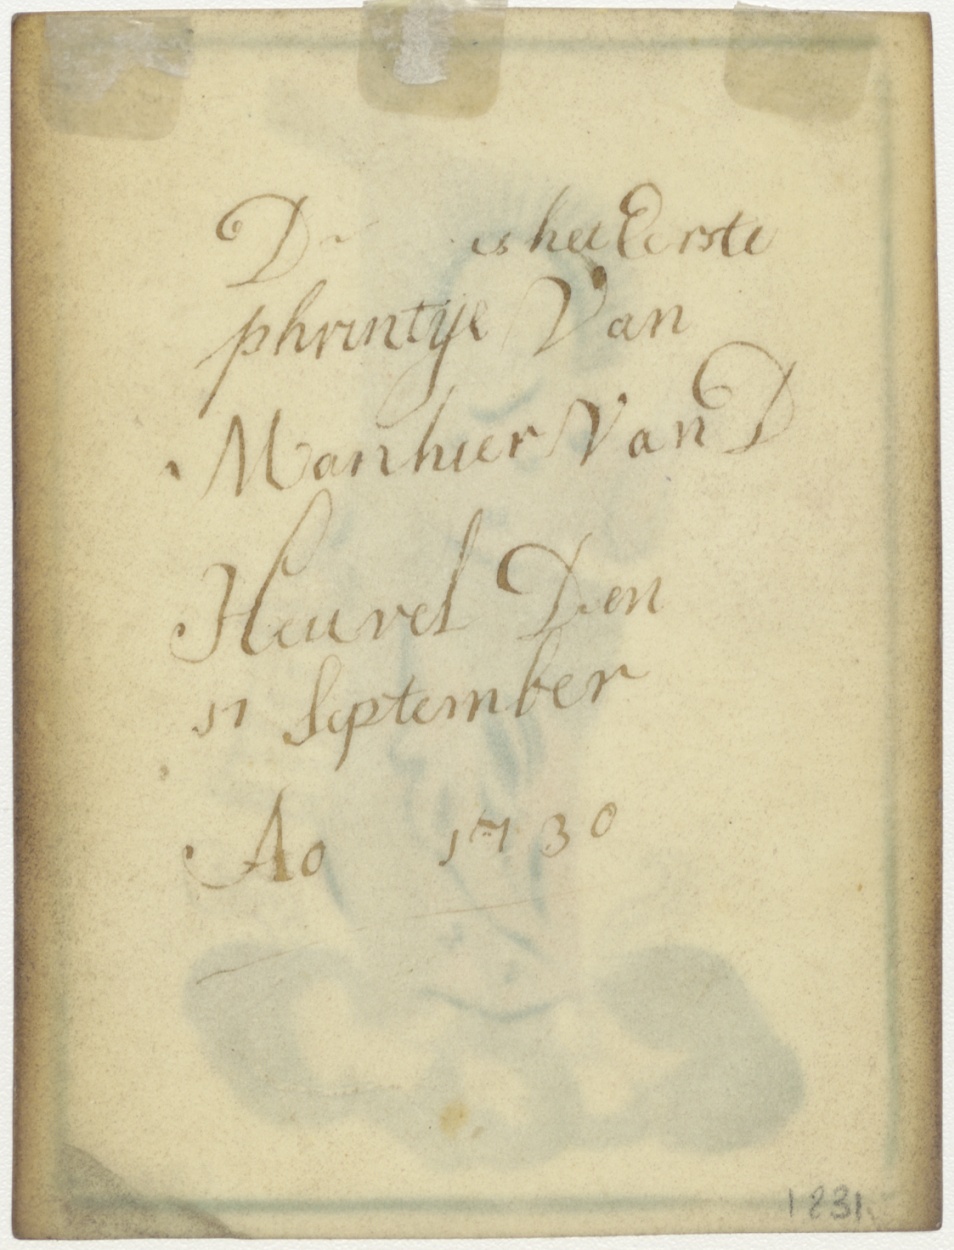 D is het Eerste
phrintije Van
Manhier Van D
Heuvel Den
11 September
Ao 1730
1831